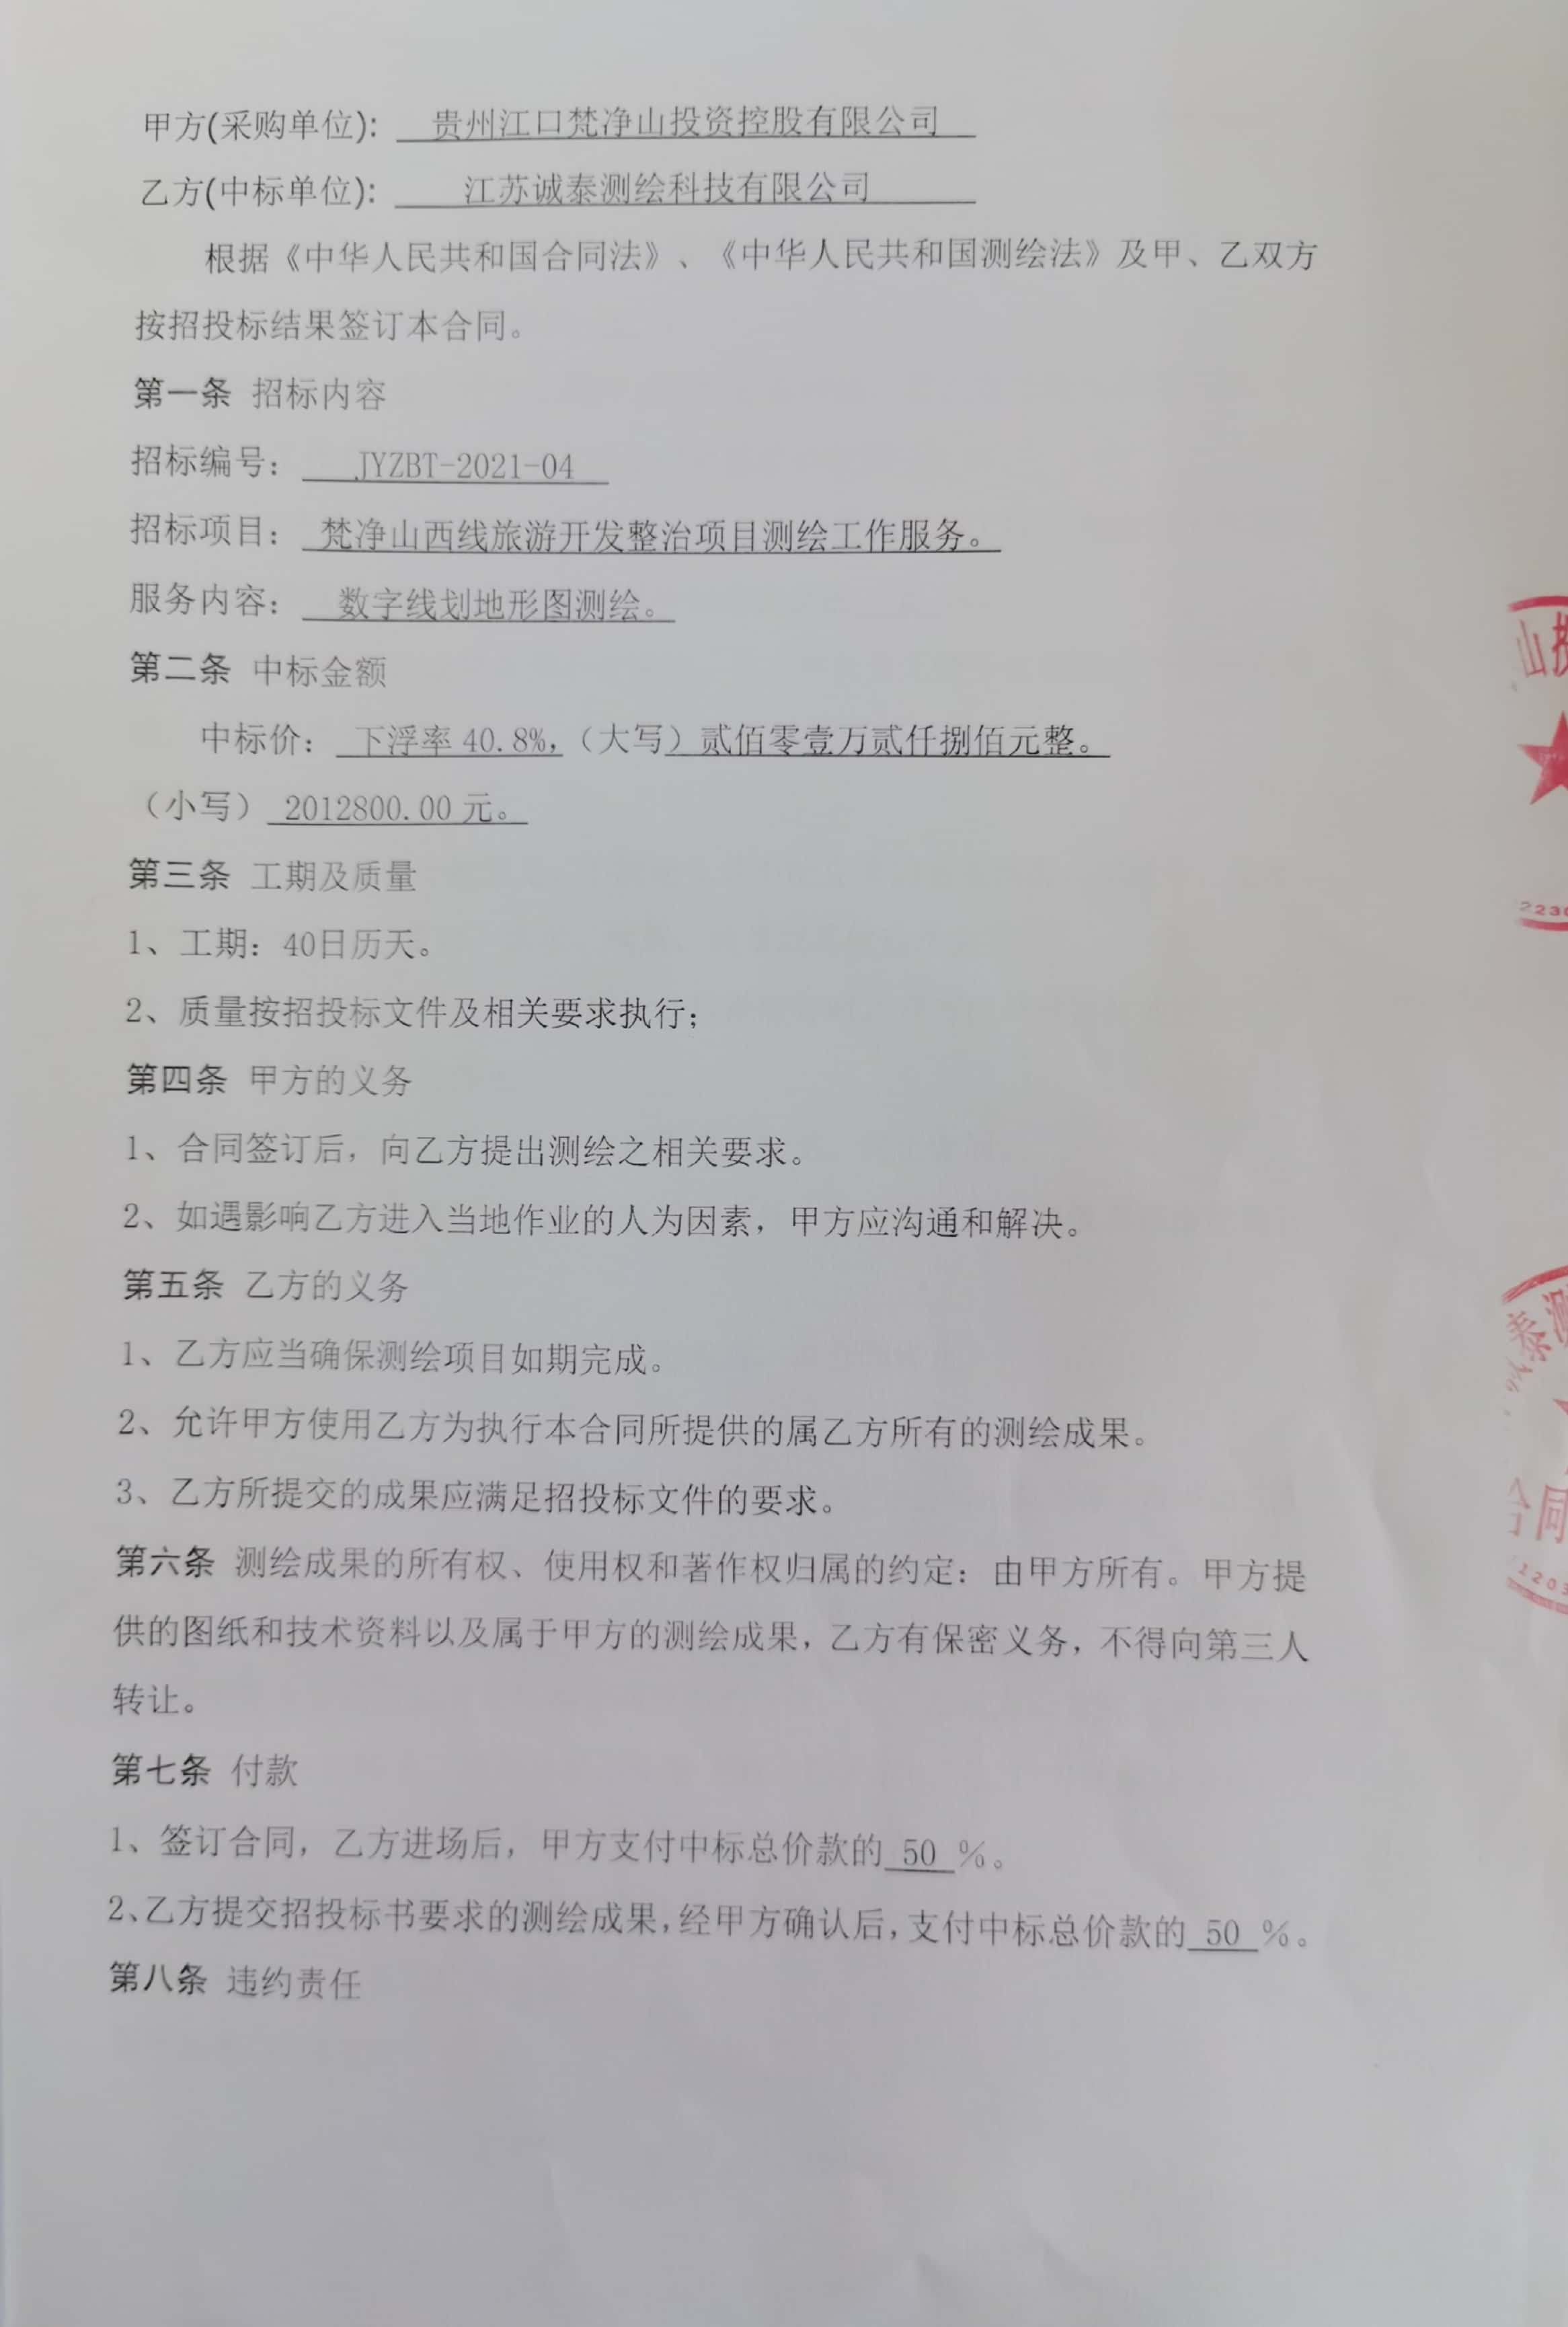 甲方(采购单位): 贵州江口梵净山投资控股有限公司
乙方(中标单位): 江苏诚泰测绘科技有限公司
根据《中华人民共和国合同法》、《中华人民共和国测绘法》及甲、乙双方
按招投标结果签订本合同。
第一条 招标内容
招标编号: JYZBT-2021-04
招标项目: 梵净山西线旅游开发整治项目测绘工作服务。
服务内容: 数字线划地形图测绘。
第二条 中标金额
中标价: 下浮率 40.8%,(大写)贰佰零壹万贰仟捌佰元整。
(小写) 2012800.00 元。
第三条 工期及质量
1、工期: 40日历天。
2、质量按招投标文件及相关要求执行;
第四条 甲方的义务
1、合同签订后,向乙方提出测绘之相关要求。
2、如遇影响乙方进入当地作业的人为因素,甲方应沟通和解决。
第五条 乙方的义务
1、乙方应当确保测绘项目如期完成。
2、允许甲方使用乙方为执行本合同所提供的属乙方所有的测绘成果。
3、乙方所提交的成果应满足招投标文件的要求。
第六条 测绘成果的所有权、使用权和著作权归属的约定: 由甲方所有。甲方提
供的图纸和技术资料以及属于甲方的测绘成果,乙方有保密义务,不得向第三人
转让。
第七条 付款
1、签订合同,乙方进场后,甲方支付中标总价款的 50 %。
2、乙方提交招投标书要求的测绘成果,经甲方确认后,支付中标总价款的 50 %。
第八条 违约责任
山投
2230
泰测
合同
1203